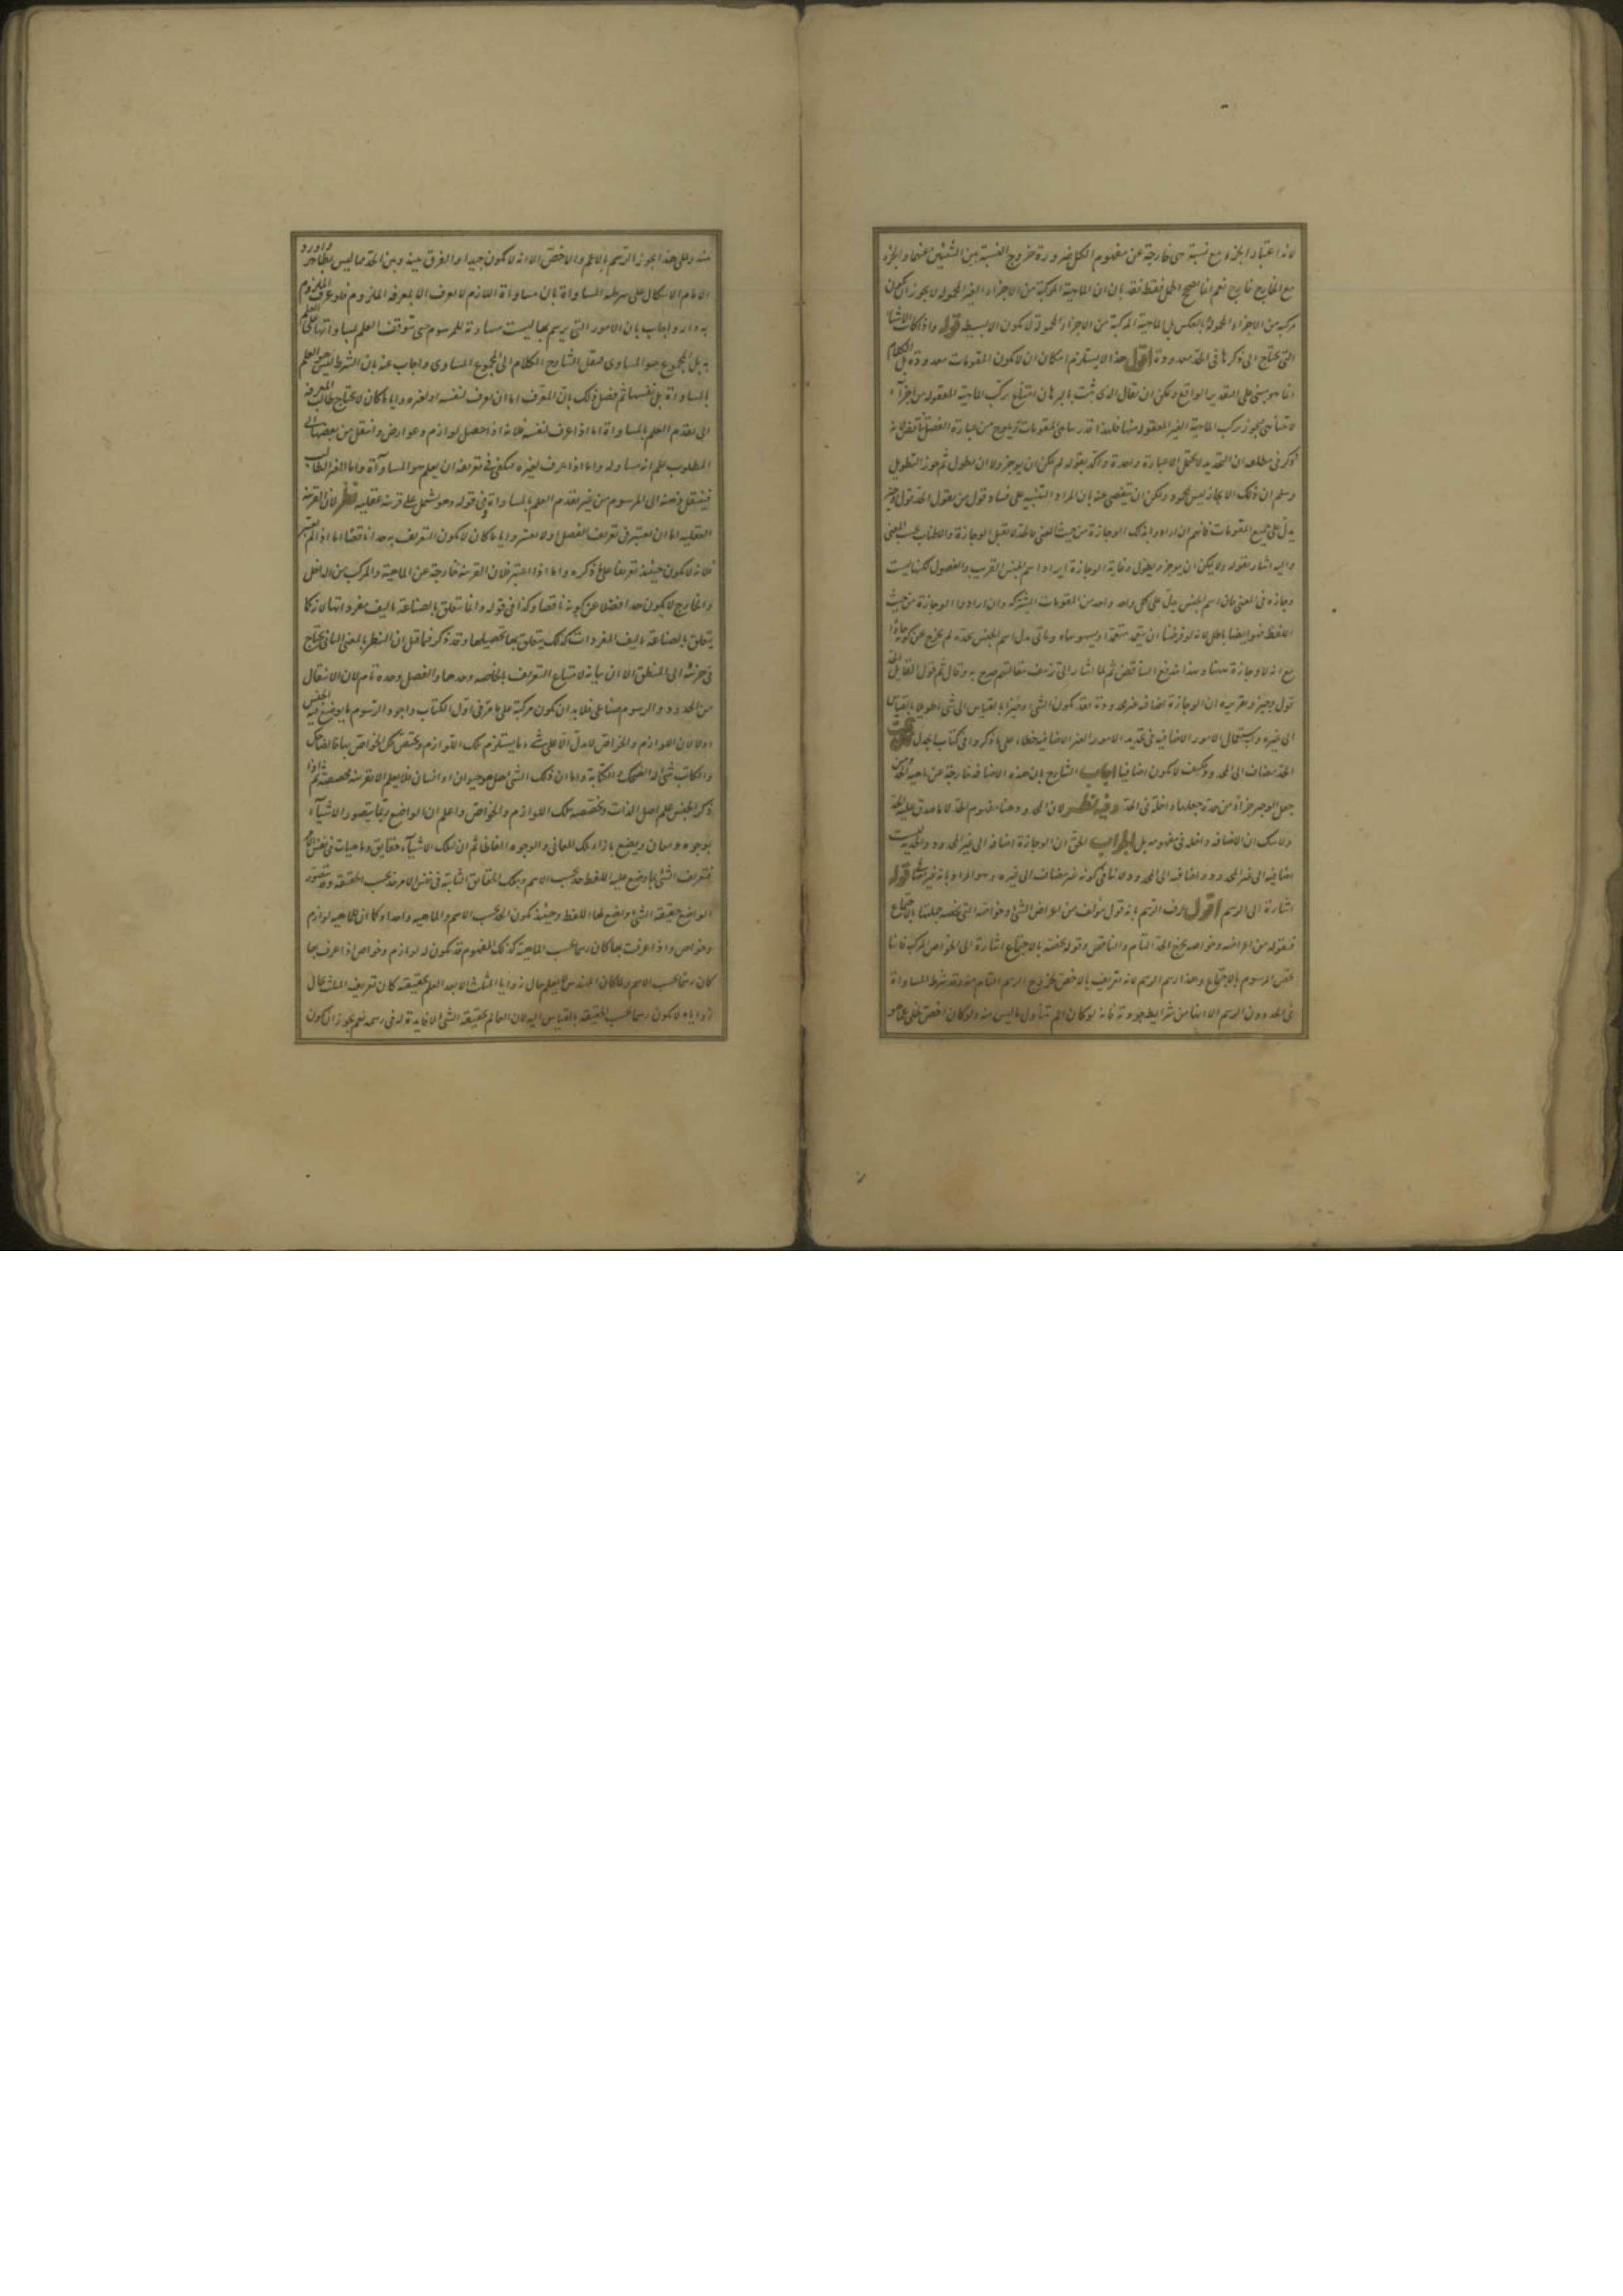 لانه اعتبار الجزء مع نسبة هى خارجة عن مفهوم الكل ضرورة خروج النسبة بين الشيئين عنهما والجزء
مع الخارج خارج نعم انما يصح الحمل فقط فقد بان ان الماهية المركبة من الاجزاء الغير المحمولة لا يجوز ان يكون
مركبة من الاجزاء المحمولة وبالعكس بل الماهية المركبة من الاجزاء المحمولة لا يكون الا بسيطة قوله واذا كانت الاشيا
التى يحتاج الى ذكرها فى الحد معدودة اقول هذا لا يستلزم امكان ان لا يكون المقومات معدودة بل الكلام
انما هو مبنى على التقدير الواقع ويمكن ان يقال الذى ثبت بالبرهان امتناع تركب الماهية المعقولة من اجزآء
لا تتناهى يجوز تركب الماهية الغير المعقولة منها فلهذا قدر تناهى المقومات ويلوح من عبارة الفصل تناقض لانه
ذكر فى مطلعه ان التحديد لا يحتمل الا عبارة واحدة واكد بقوله لم يمكن ان يوجز ولا ان يطول ثم جوز التطويل
وسلم ان ذلك الايجاز ليس بمحمود ويمكن ان يتفصى عنه بان المراد التنبيه على فساد قول من يقول الحد قول وجيز
يدل على جميع المقومات فانهم ان ارادوا بذلك الوجازة من حيث المعنى فالحد لا يقبل الوجازة والاطناب بحسب المعنى
واليه اشار بقوله ولا يمكن ان يوجز ويطول وغاية الوجازة ايراد اسم الجنس القريب والفصول لكنها ليست
وجازة فى المعنى فان اسم الجنس يدل على كل واحد واحد من المقومات المشتركة وان ارادوا الوجازة من حيث
اللفظ فهو ايضا باطل لانه لو فرضنا ان يتعمد متعمد او يسهو ساه وياتى بدل اسم الجنس بحده لم يخرج عن كونه حادا
مع انه لا وجازة هناك وبهذا يندفع التناقض ثم لما اشار الى تزييف مقالتهم صرح به وقال ثم قول القايل الحد
قول وجيز وتقريره ان الوجازة اضافية غير محدودة فقد يكون الشئ وجيزا بالقياس الى شئ طويلا بالقياس
الى غيره واستعمال الامور الاضافية فى تحديد الامور الغير الاضافية خطاء على ما ذكروا فى كتاب الجدل
الحد مضاف الى المحدود فكيف لا يكون اضافيا اجاب الشارح بان هذه الاضافة خارجة عن ماهية الحد ومن
جعل الوجيز جزأ من حده جعلها داخلة فى الحد وفيه نظر لان المحدود هنا مفهوم الحد لا ما صدق عليه الحد
ولا شك ان الاضافة داخلة فى مفهومه بل الجواب الحق ان الوجازة اضافة الى غير المحدود والحد ليست
اضافية الى غير المحدود واضافية الى المحدود ولا ينافى كونه غير مضاف الى غيره وهو المراد بانه غير مضاف قوله
اشارة الى الرسم اقول عرف الرسم بانه قول مؤلف من اعراض الشئ وخواصه التى تخصه جملتها بالاجتماع
فبقوله من اعراضه وخواصه يخرج الحد التام والناقص وقوله تخصه بالاجتماع اشارة الى الخواص المركبة فانها
تخص المرسوم بالاجتماع وهذا رسم الرسم لانه تعريف بالاخص لخروج الرسم التام منه وقد شرط المساواة
فى الحد دون الرسم الا انها من شرايط جودته فانه لو كان اعم تناول ما ليس منه ولو كان اخص تخلى عما هو
منه وعلى هذا يجوز الرسم بالاعم والاخص الا انه لا يكون جيدا والفرق بينه وبين الحد هنا ليس بظاهر واورد
الامام الاشكال على شرطية المساواة بان مساواة اللازم لا يعرف الا بمعرفة الملزوم فلو عرف الملزوم
به دار واجاب بان الامور التى يرسم بها ليست مساوية للمرسوم حتى يتوقف العلم بمساواتها على العلم
به بل المجموع هو المساوى فنقل الشارح الكلام الى المجموع المساوى واجاب عنه بان الشرط ليس هو العلم
بالمساواة بل نفسها ثم فصل ذلك بان المعرف اما ان يعرف لنفسه او لغيره واياما كان لا يحتاج طالب المعرفة
الى تقدم العلم بالمساواة اما اذا عرف لنفسه فلانه اذا حصل لوازم وعوارض وانتقل من بعضها الى
المطلوب علم انه مساو له واما اذا عرف لغيره فيكفى فى تعريفه ان يعلم هو المساوآة واما الغير الطالب
فينتقل ذهنه الى المرسوم من غير تقدم العلم بالمساواة وفى قوله وهو يشتمل على قرينة عقلية نظر لان القرينة
العقلية اما ان يعتبر فى تعريف الفصل او لا يعتبر واياما كان لا يكون التعريف به حدا ناقصا اما اذا لم يعتبر
فلانه لا يكون حينئذ تعريفا على ما ذكره واما اذا اعتبر فلان القرينة خارجة عن الماهية والمركب من الداخل
والخارج لا يكون حدا فضلا عن كونه ناقصا وكذا فى قوله وانما يتعلق بالصناعة تاليف مفرداتها لانه كما
يتعلق بالصناعة تاليف المفردات كذلك يتعلق بها تحصيلها وقد ذكر فيما قبل ان النظر بالمعنى الثانى يحتاج
فى جزئيه الى المنطق الا ان بيانه لامتناع التعريف بالخاصة وحدها والفصل وحده تام لان الانتقال
من الحدود والرسوم صناعى فلا بد ان يكون مركبة على ما مر فى اول الكتاب واجود الرسوم ما يوضع فيه الجنس
اولا لان اللوازم والخواص لا يدل الا على شئ ما يستلزم تلك اللوازم ويختص بتلك الخواص بيانه ان الضاحك
والكاتب شئ له الضحك والكتابة واما ان ذلك الشئ هل هو حيوان او انسان فلا يعلم الا بقرينة مخصصة ثم اذا
ذكر الجنس علم اصل الذات وتخصصه بتلك اللوازم والخواص واعلم ان الواضع ربما يتصور الاشيآء
بوجوه ومعان ويضع بازاء تلك المعانى والوجوه الفاظا ثم ان لتلك الاشيآء حقايق وماهيات فى نفس الامر
فتعريف الشئ بما وضع عليه اللفظ حد بحسب الاسم وبتلك الحقايق الثابتة فى نفس الامر حد بحسب الحقيقة وقد يتصور
الواضع حقيقة الشئ ويضع لها اللفظ وحينئذ يكون الحد بحسب الاسم والماهية واحدا وكما ان للماهية لوازم
وخواص واذا عرفت بها كان رسما بحسب الماهية كذلك المفهوم قد يكون له لوازم وخواص اذا عرف بها
كان رسما بحسب الاسم ولما كان المهندس لا يعلم حال زوايا المثلث الا بعد العلم بحقيقته كان تعريف المثلث بحال
زواياه لا يكون رسما بحسب الحقيقة بالقياس اليه لان العالم بحقيقة الشئ لا فايدة له فى رسمه نعم يجوز ان يكون